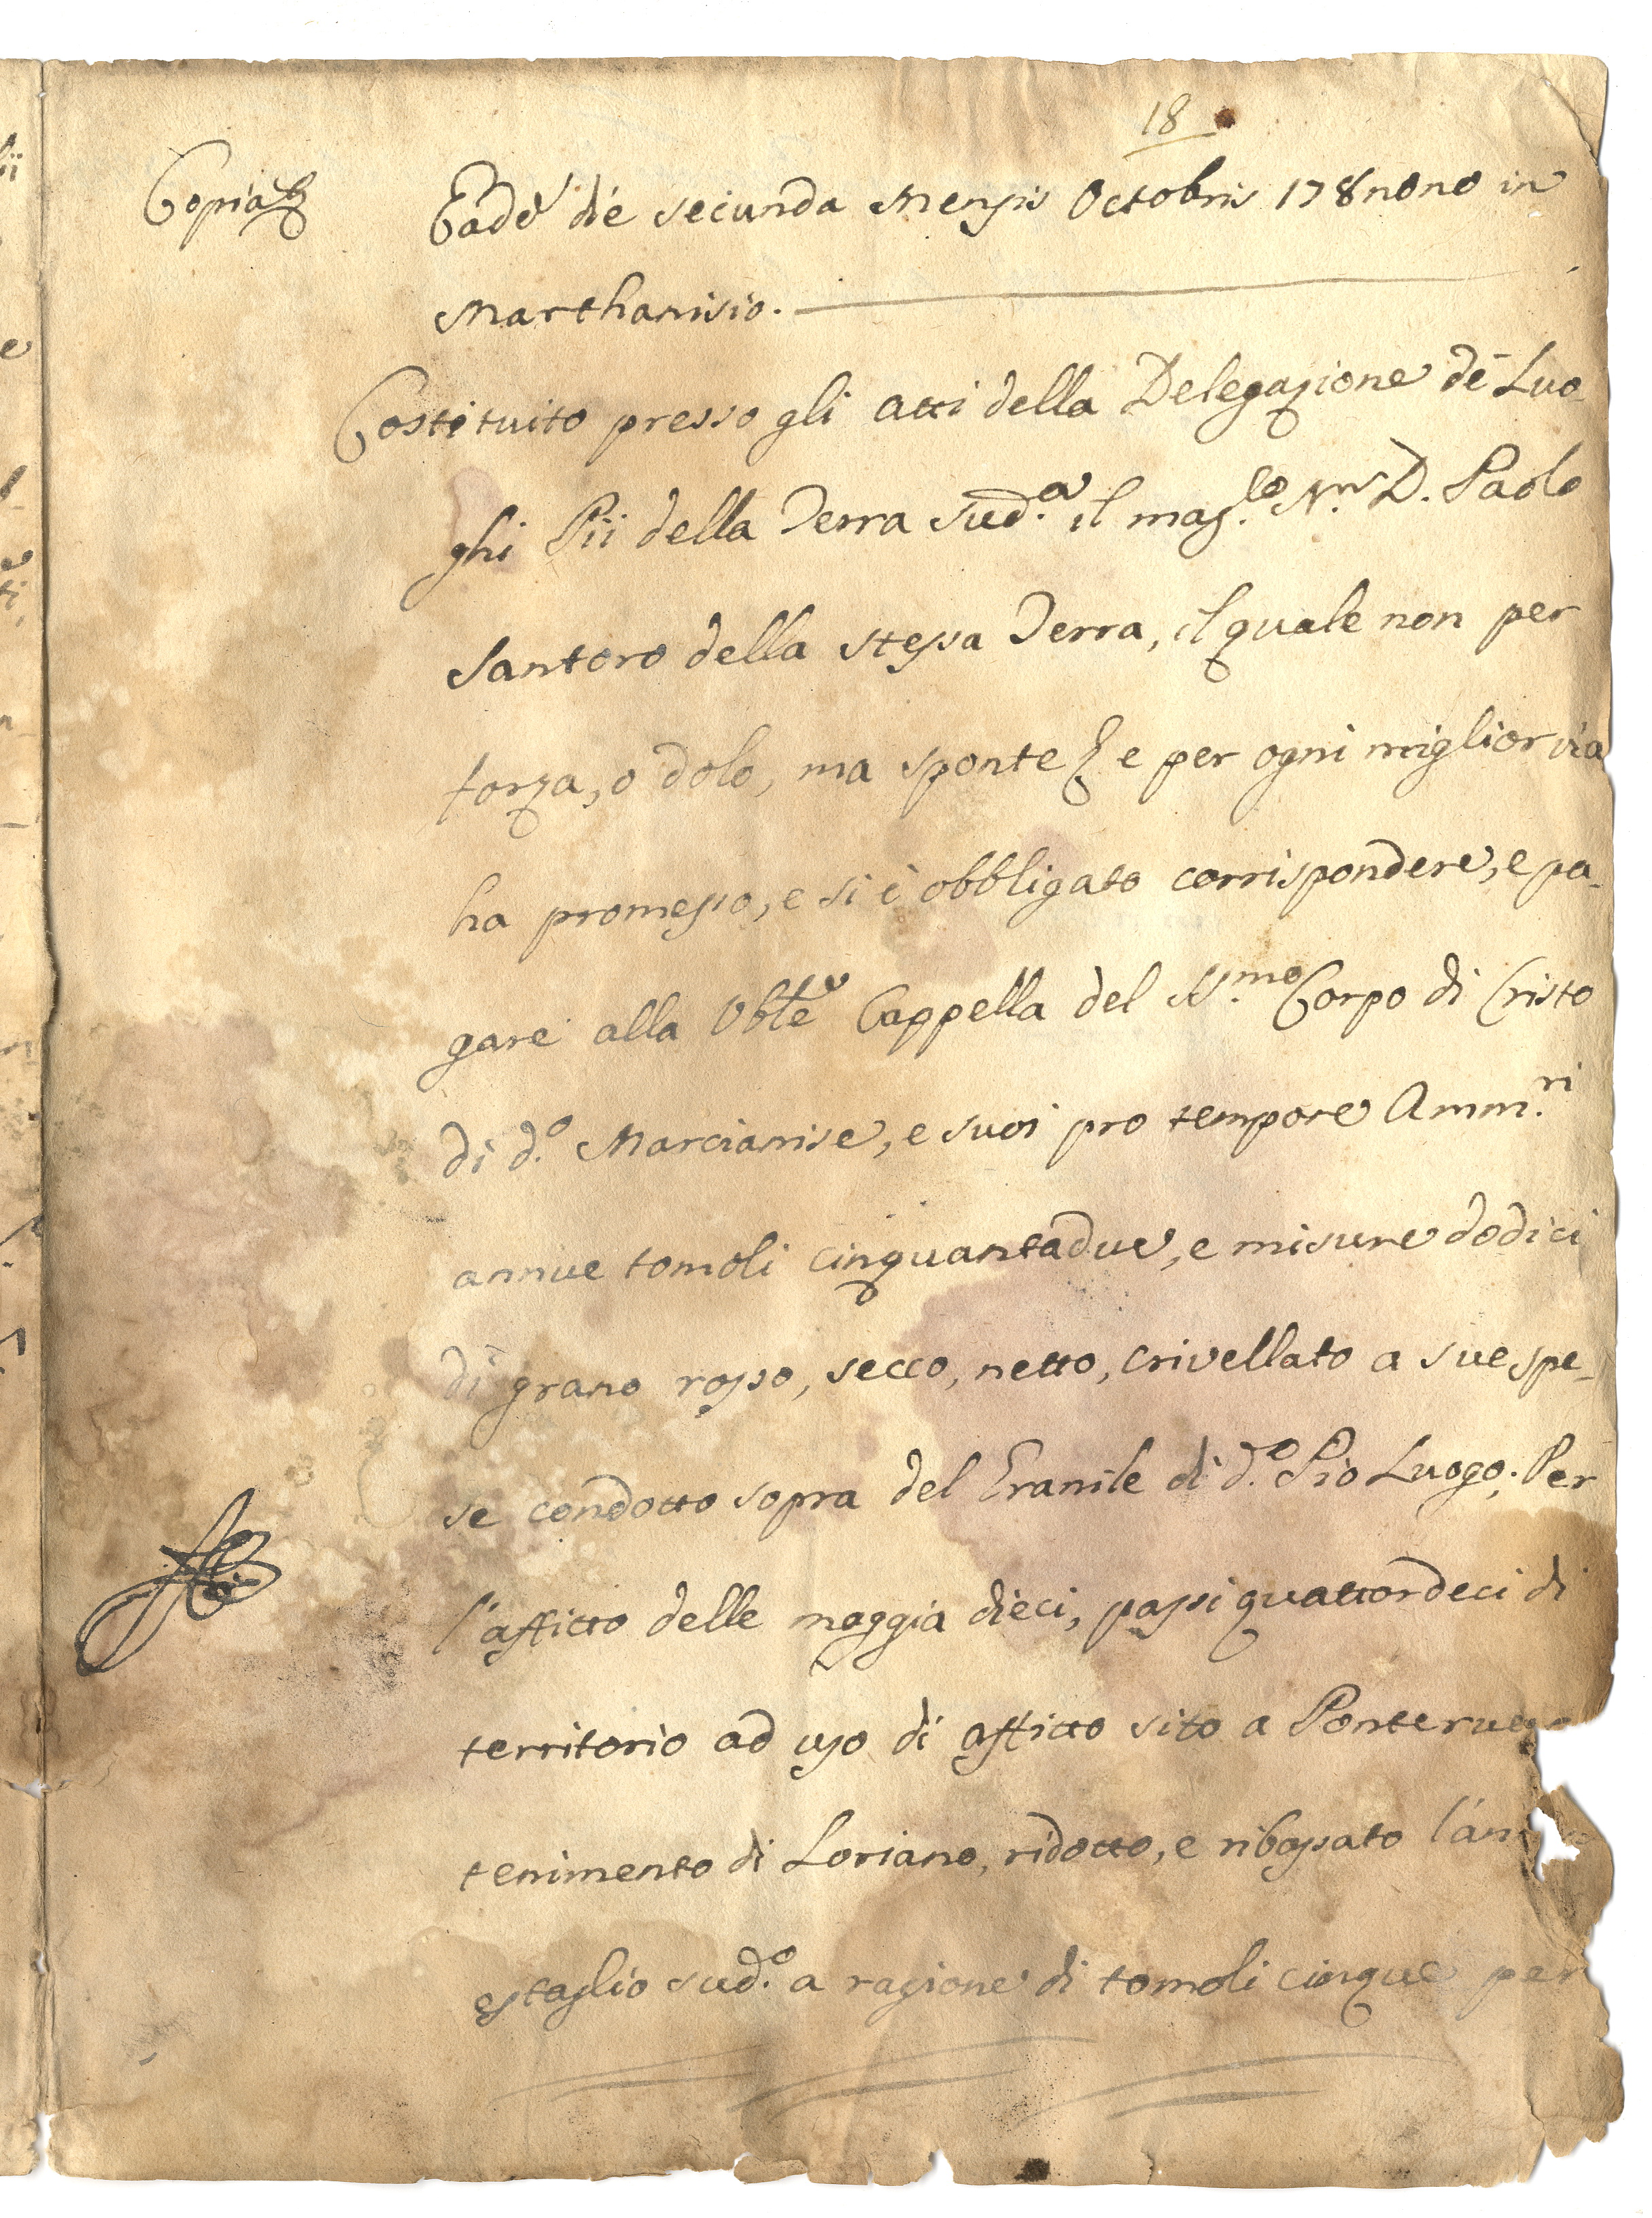 18
Copia
Eadẽ die secunda Mensis Octobris 178nono in
Marthanisio.
Costituito presso gli atti della Delegazione de' Luo-
ghi Pii della Terra sud.ª il mag.co N.r D. Paolo
Santoro della stessa Terra, il quale non per
forza, o dolo, ma sponte & e per ogni miglior via
ha promesso, e si è obbligato corrispondere, e pa-
gare alla Vbłe Cappella del SS.mo Corpo di Cristo
di d.º Marcianise, e suoi pro tempore Amm.ri
annue tomoli cinquantadue, e misure dodici
di grano rosso, secco, netto, crivellato a sue spe-
se condotto sopra del Granile di d.º Pio Luogo; Per
l'affitto delle moggia dieci, passi quattordeci di
territorio ad uso di affitto sito a
tenimento di Loriano, ridotto, e ribassato l'an
estaglio sud.º a ragione di tomoli cinque per